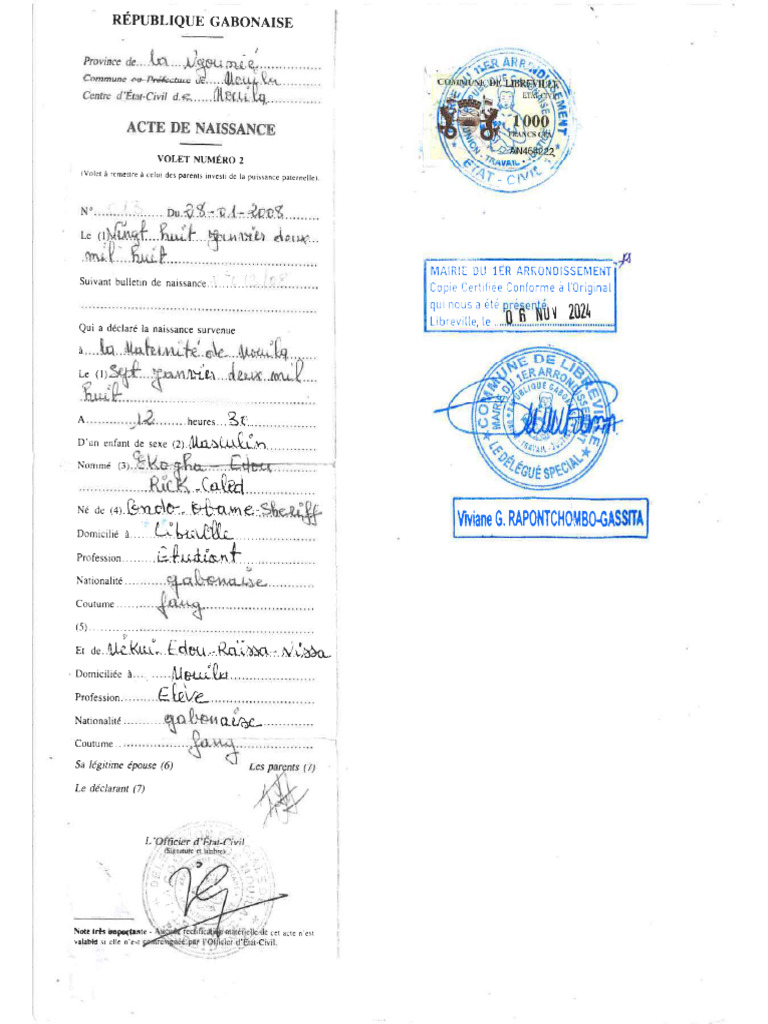 RÉPUBLIQUE GABONAISE
Province de la Ngounié
Commune ou Préfecture de Mouila
Centre d'État-Civil de Mouila
ACTE DE NAISSANCE
VOLET NUMÉRO 2
(Volet à remettre à celui des parents investi de la puissance paternelle).
N° 013 Du 28-01-2008
Le (1) Vingt huit janvier deux
mil huit
Suivant bulletin de naissance
Qui a déclaré la naissance survenue
à la Maternité de Mouila
Le (1) Sept janvier deux mil
huit
A 12 heures 30
D'un enfant de sexe (2) Masculin
Nommé (3) Ekogha - Edou
Rick Caled
Né de (4) Endo Obame Sheriff
Domicilié à Libreville
Profession Etudiant
Nationalité gabonaise
Coutume fang
(5)
Et de Mékui Edou Raïssa Nissa
Domiciliée à Mouila
Profession Elève
Nationalité gabonaise
Coutume fang
Sa légitime épouse (6) Les parents (7)
Le déclarant (7)
L'Officier d'État-Civil
(Signature et timbre)
Note très importante - Aucune rectification matérielle de cet acte n'est
valable si elle n'est contresignée par l'Officier d'État-Civil.
MAIRIE DU 1ER ARRONDISSEMENT
COMMUNE DE LIBREVILLE
ETAT CIVIL
1000
FRANCS CFA
AN468222
UNION - TRAVAIL - JUSTICE
ETAT - CIVIL
MAIRIE DU 1ER ARRONDISSEMENT
Copie Certifiée Conforme à l'Original
qui nous a été présenté.
Libreville, le 06 NOV 2024
COMMUNE DE LIBREVILLE
MAIRIE DU 1ER ARRONDISSEMENT
REPUBLIQUE GABONAISE
LE DÉLÉGUÉ SPECIAL
Viviane G. RAPONTCHOMBO-GASSITA